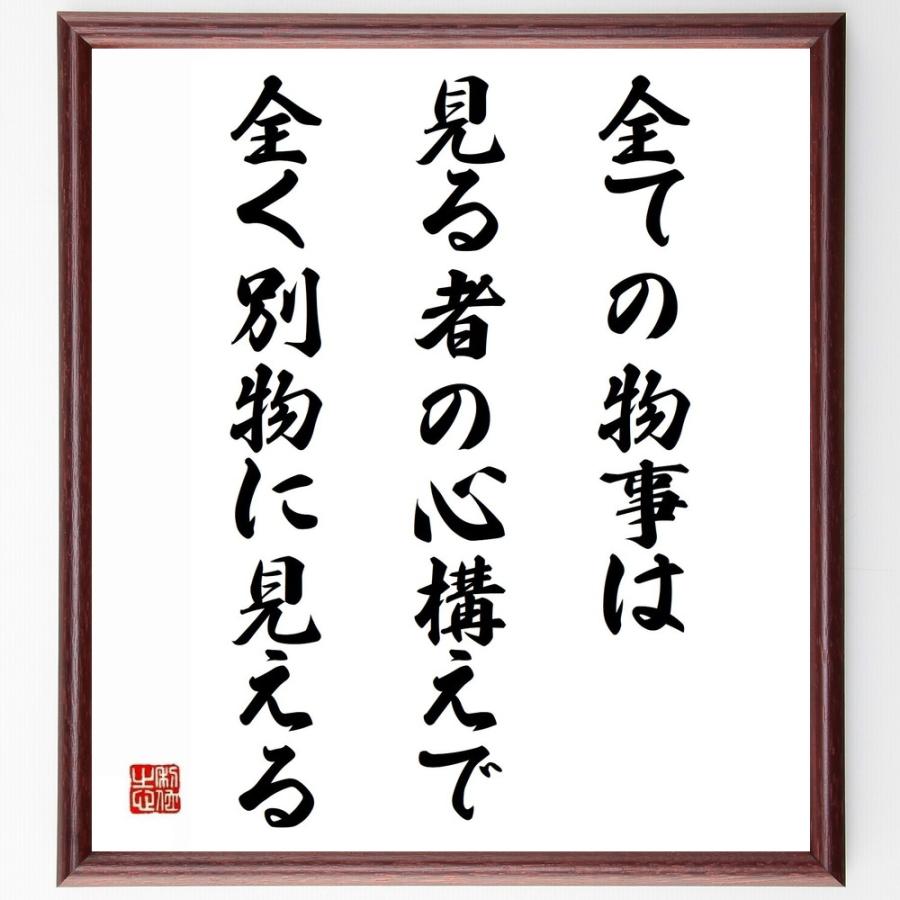 全ての物事は
見る者の心構えで
全く別物に見える